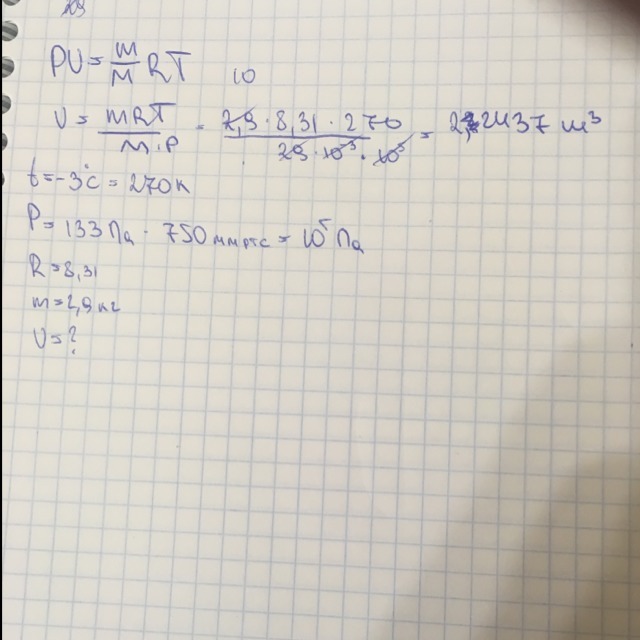 PV = m/M RT
10
V = mRT/M·P = 2,9 · 8,31 · 270/29 · 10⁻³ · 10⁵ = 2,2437 м³
t = -3°C = 270К
P = 133 Па · 750 мм рт с = 10⁵ Па
R = 8,31
m = 2,9 кг
V = ?